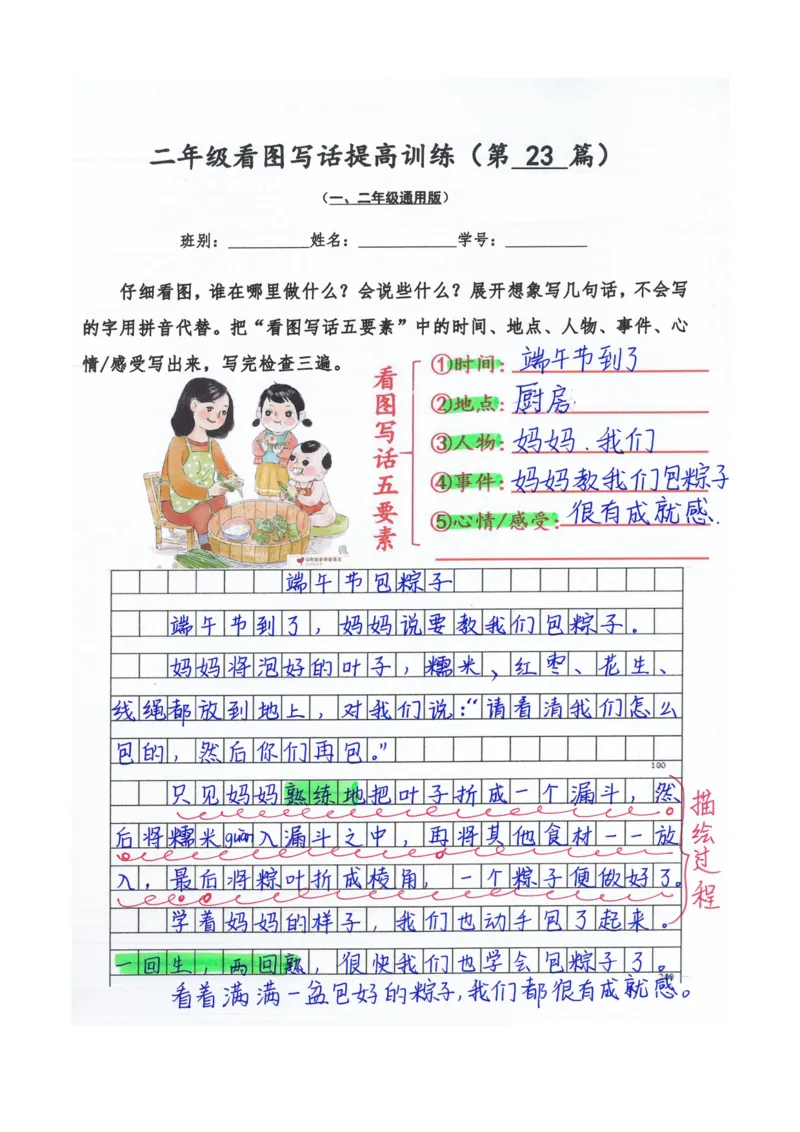 二年级看图写话提高训练（第 23 篇）
（一、二年级通用版）
班别：__________姓名：____________学号：__________
仔细看图，谁在哪里做什么？会说些什么？展开想象写几句话，不会写
的字用拼音代替。把“看图写话五要素”中的时间、地点、人物、事件、心
情/感受写出来，写完检查三遍。
看图写话五要素
①时间：端午节到了
②地点：厨房
③人物：妈妈、我们
④事件：妈妈教我们包粽子
⑤心情/感受：很有成就感.
端午节包粽子
端午节到了，妈妈说要教我们包粽子。
妈妈将泡好的叶子，糯米、红枣、花生、
线绳都放到地上，对我们说：“请看清我们怎么
包的，然后你们再包。”
100
只见妈妈熟练地把叶子折成一个漏斗，然
后将糯米guàn入漏斗之中，再将其他食材一一放
入，最后将粽叶折成棱角，一个粽子便做好了。
描绘过程
学着妈妈的样子，我们也动手包了起来。
一回生，两回熟，很快我们也学会包粽子了。
200
看着满满一盆包好的粽子，我们都很有成就感。